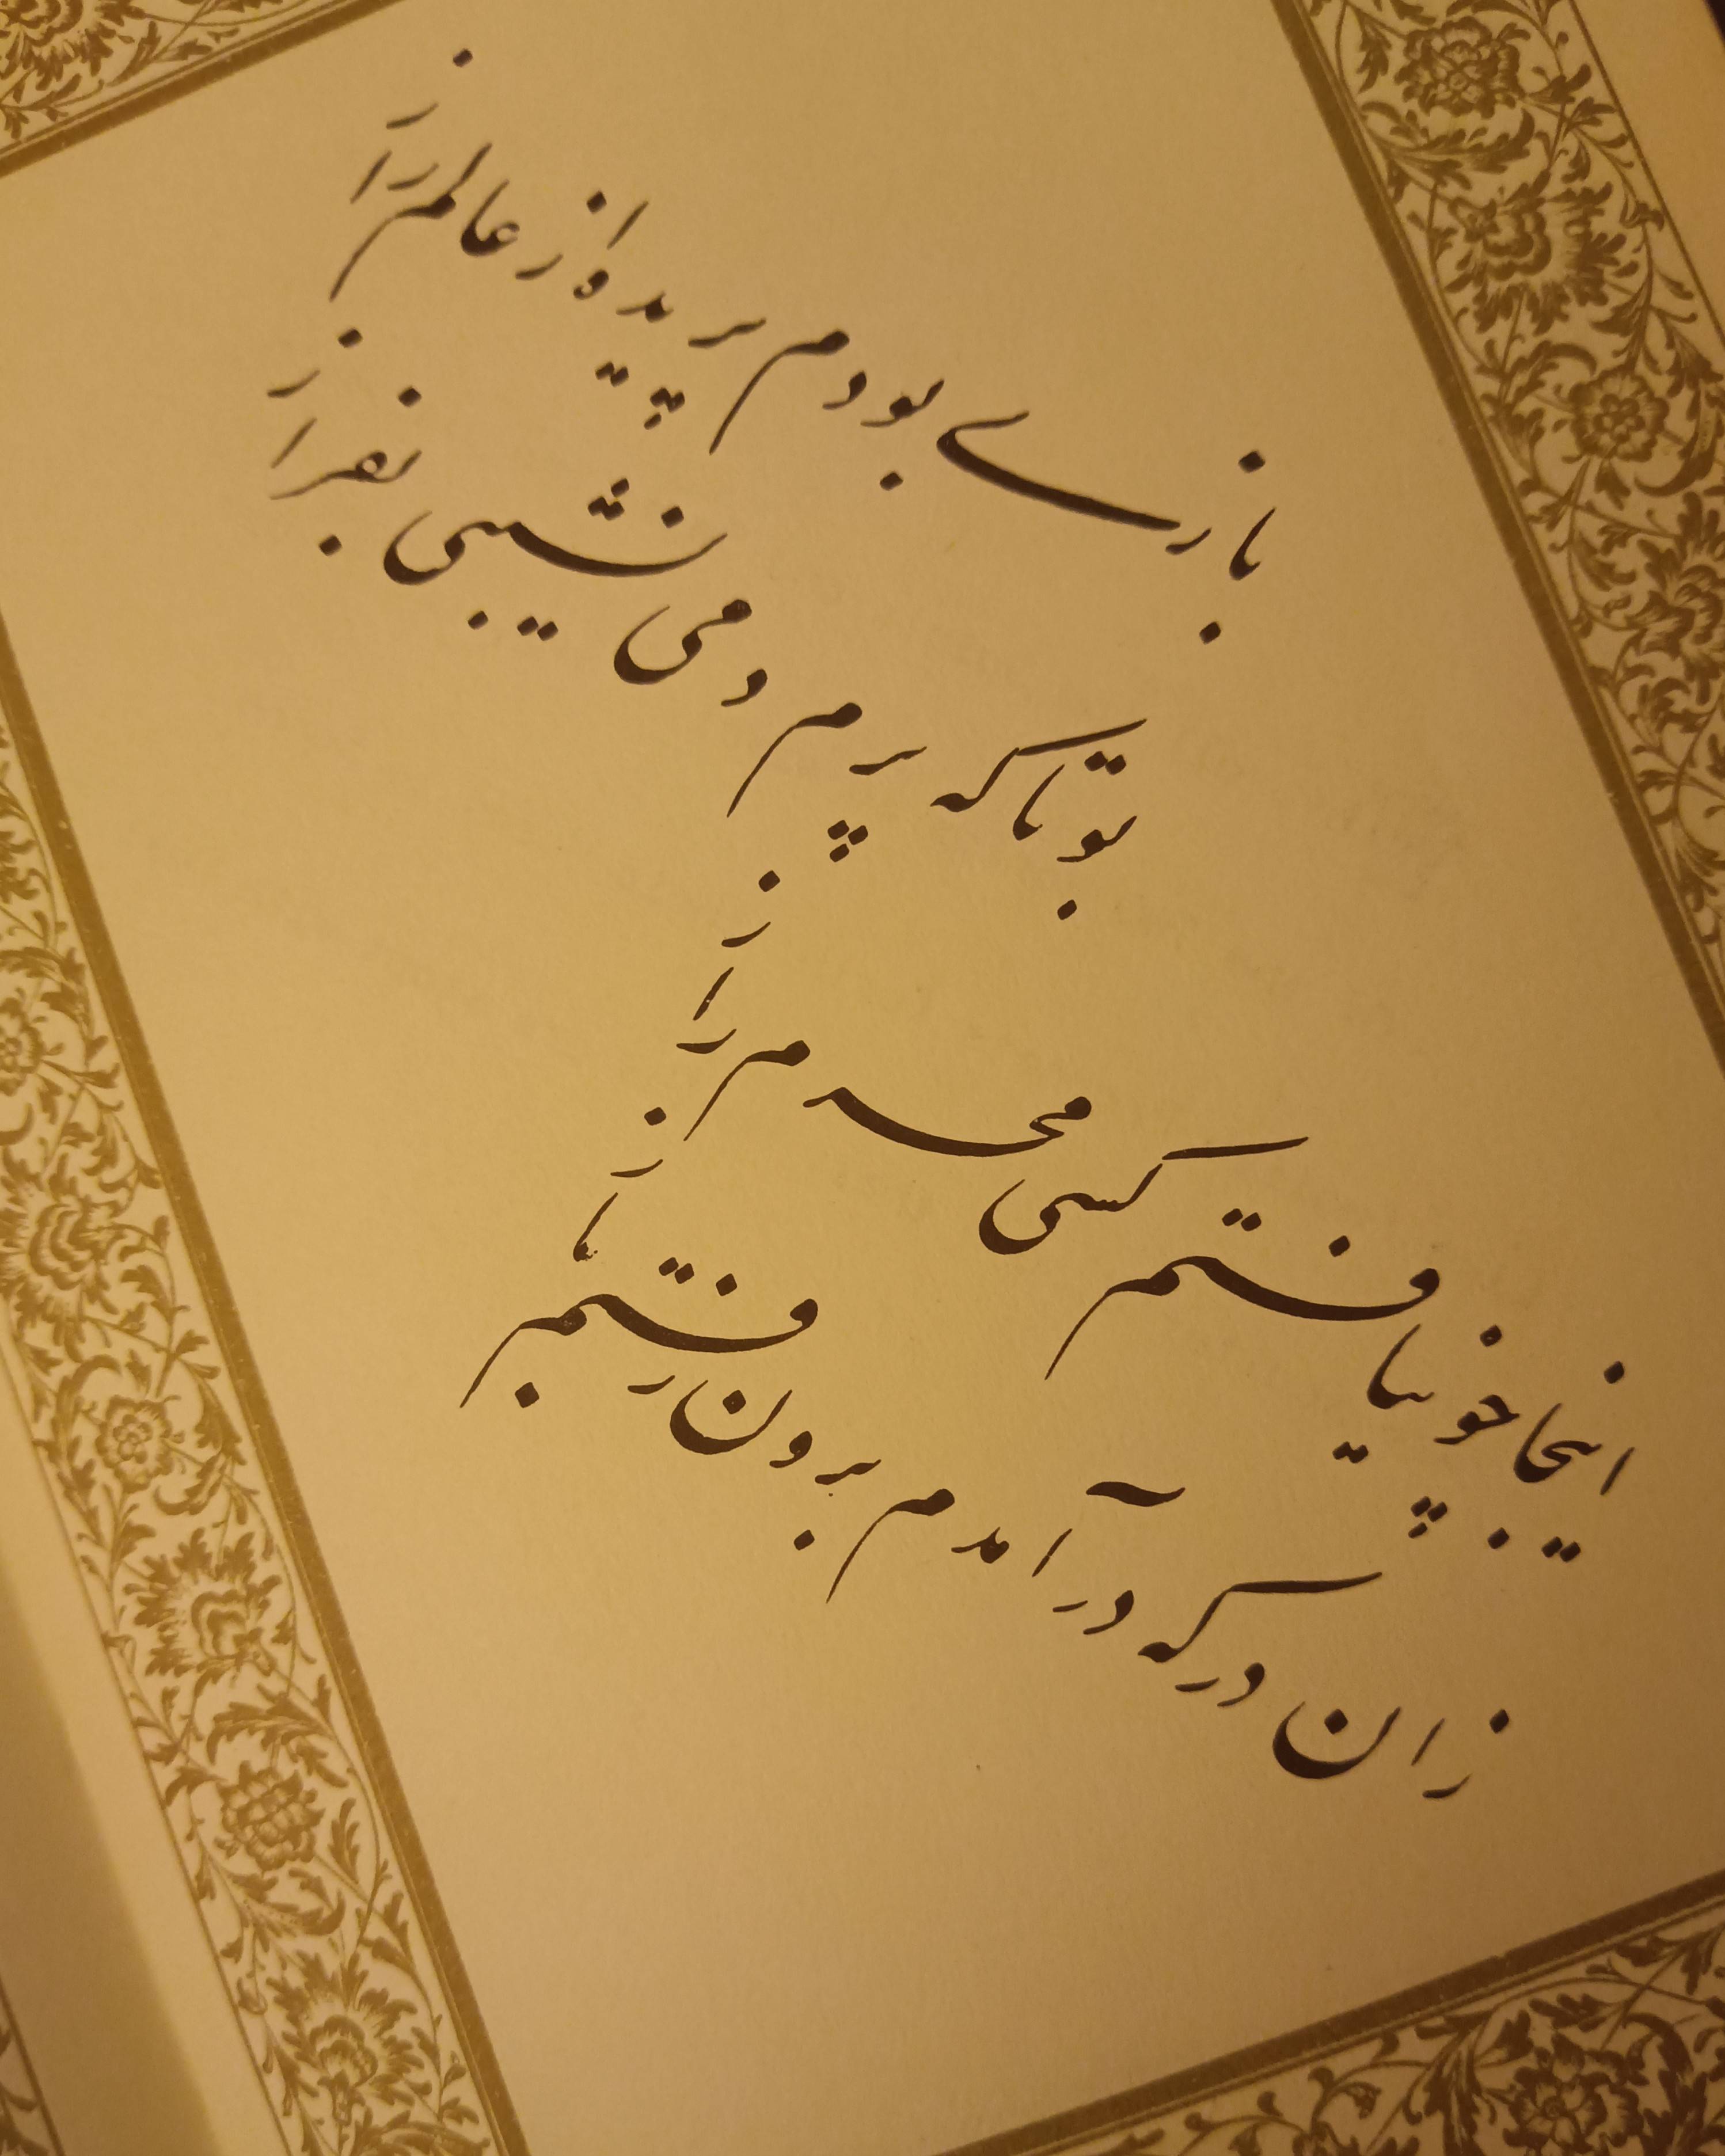 بازی بودم پریده از عالم راز
بو تا که پرم دمی نشیبی بفراز
اینجا چو نیافتم کسی محرم راز
زان در که در آمدم برون رفتم باز